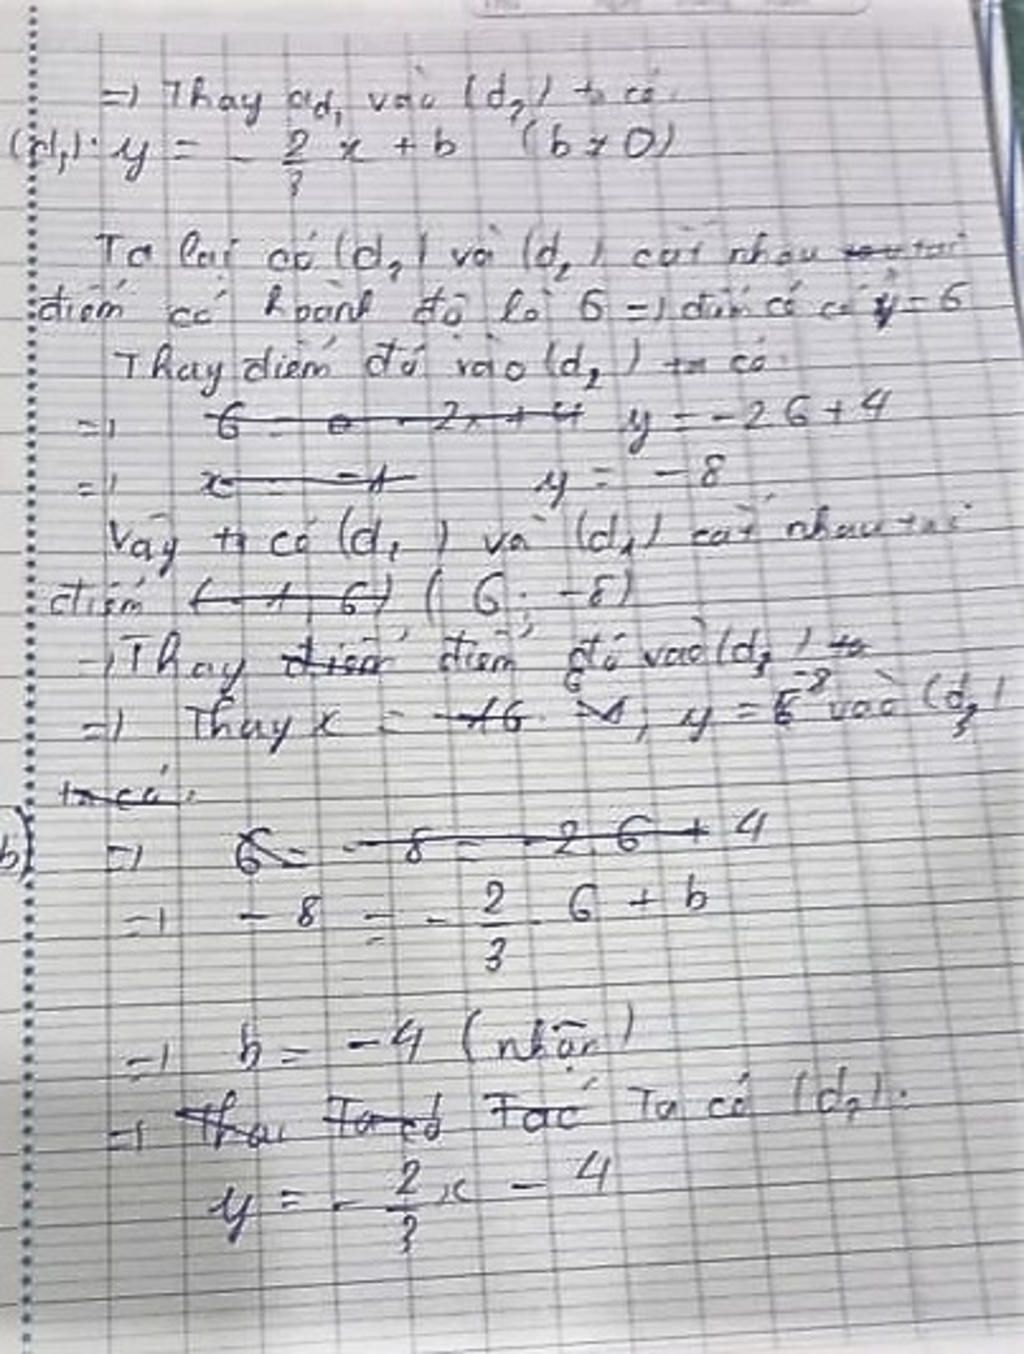 =) Thay ad₁ vào (d₂) ta có:
(d₁): y = - 2/3 x + b (b ≠ 0)
Ta lại có (d₂) và (d₁) cắt nhau tại
điểm có hoành độ là 6 =) điểm có y = 6
Thay điểm đó vào (d₂) ta có:
=) 6 = -2x + 4 y = -2 6 + 4
=) x = -1 y = -8
Vậy ta có (d₁) và (d₂) cắt nhau tại
điểm (-1; 6) (6; -8)
=) Thay điểm điểm đó vào (d₃) ta
=) Thay x = 6; y = -8 vào (d₃)
ta có:
b) =) 6 = -8 = -2 6 + 4
=) -8 = - 2/3 . 6 + b
=) b = -4 (nhận)
=) Thay Ta có Tac Ta có (d₂):
y = - 2/3 x - 4